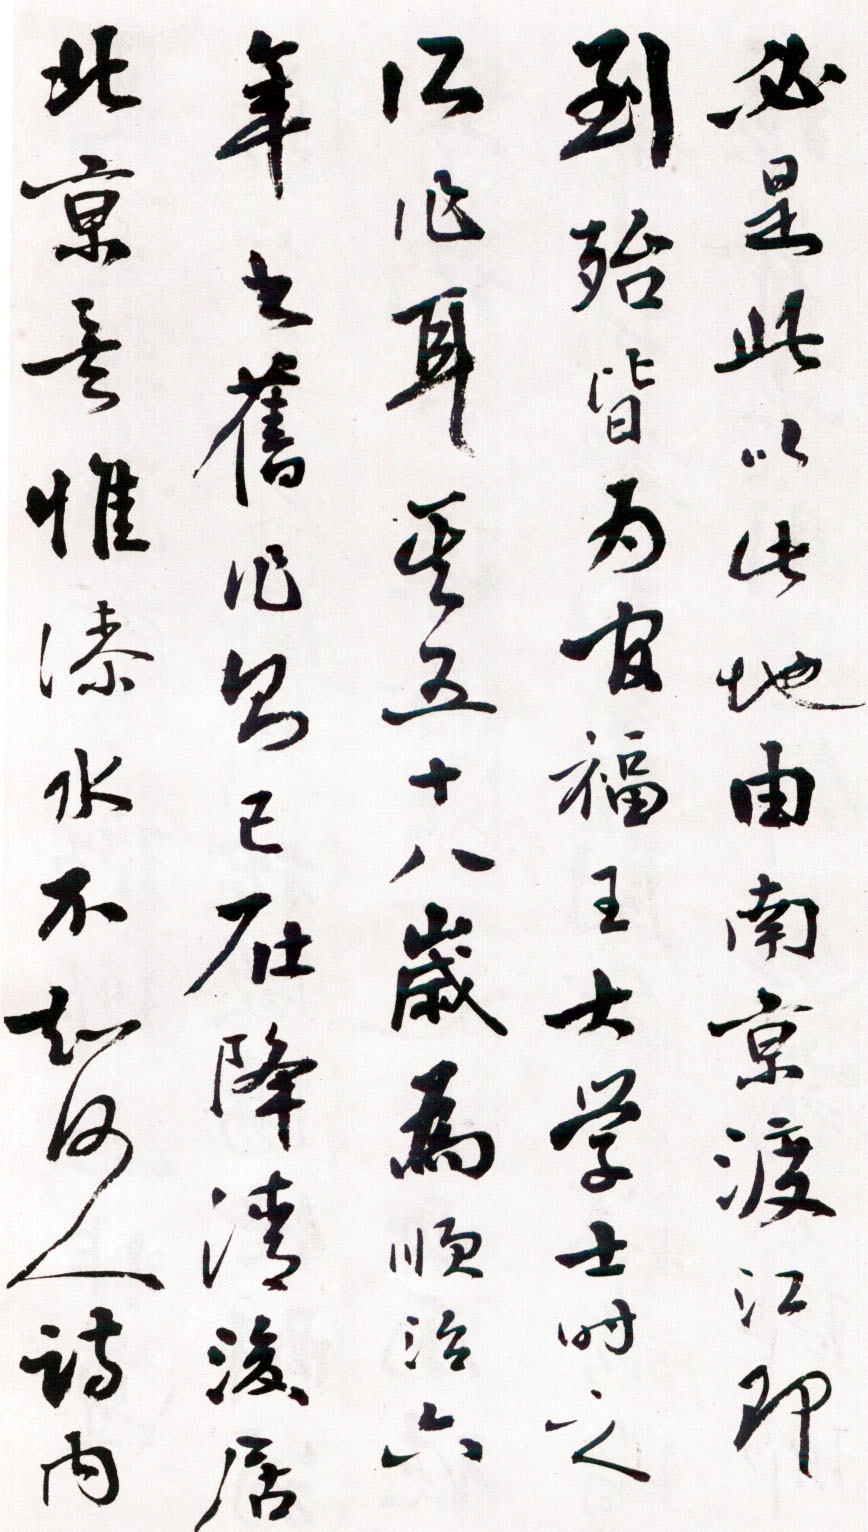 必是此以此地由南京渡江即
到殆皆为官福王大学士时之
所作耳其五十八歲為順治六
年之舊作則已在降清後居
北京矣惟溱水不知何人詩内